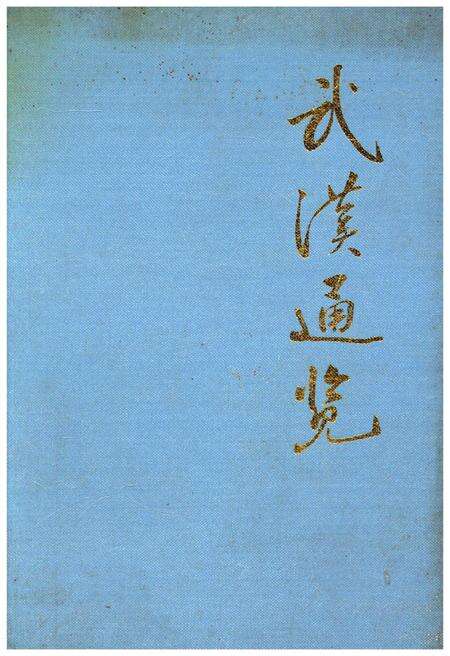 武漢通览